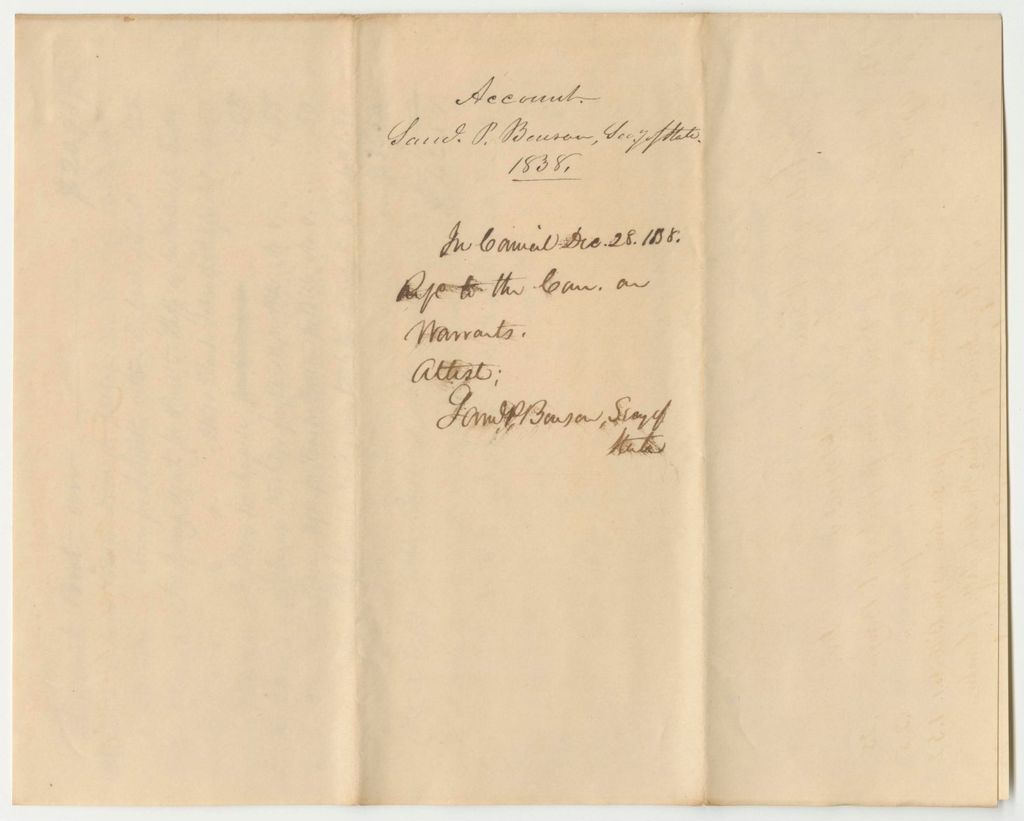 Account
Saml. P. Benson, Secy of State.
1838.
In Council Dec. 28. 1838.
to the Com. on
Warrants.
Attest;
Saml P. Benson, Secy of
State